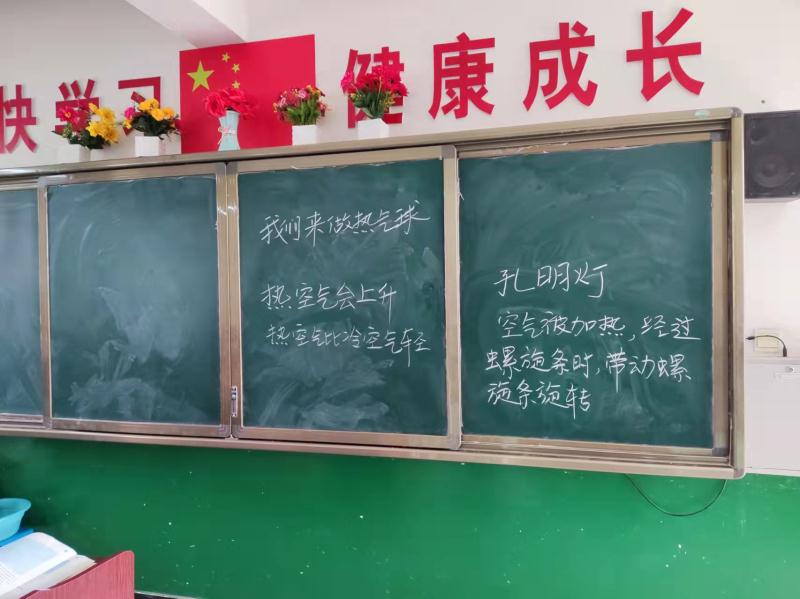 快学习
健康成长
我们来做热气球
热空气会上升
热空气比冷空气轻
孔明灯
空气被加热,经过
螺旋条时,带动螺
旋条旋转